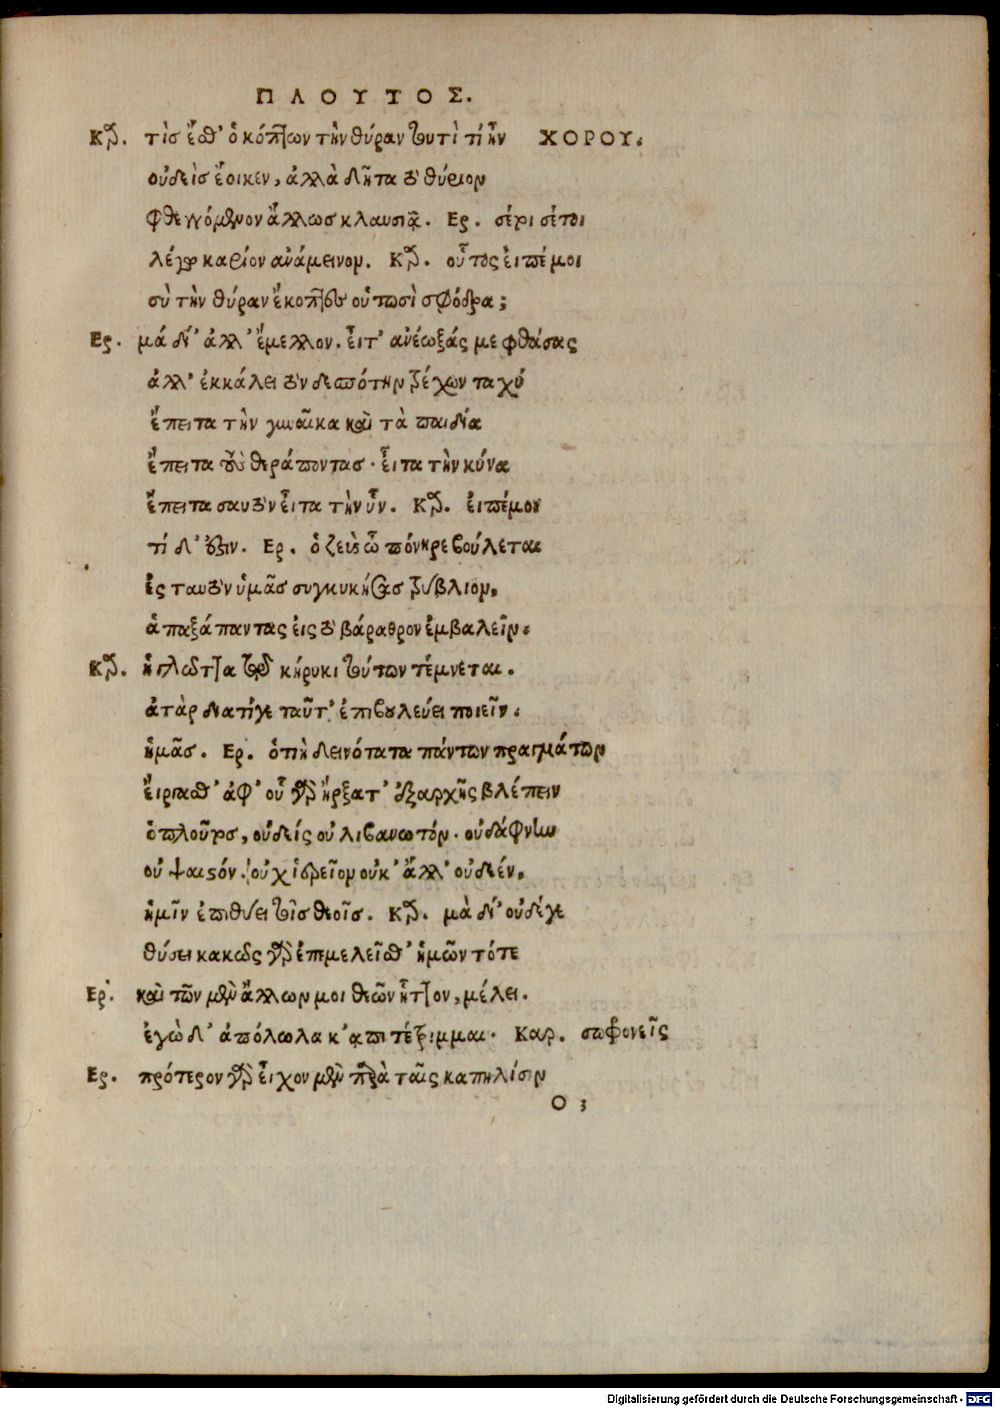 ΠΛΟΥΤΟΣ.
Καρ. τὶς ἔσθ' ὁ κόπτων τὴν θύραν τουτὶ τί ἦν ΧΟΡΟΥ.
οὐδεὶς ἔοικεν, ἀλλὰ δῆτα τὸ θύριον
φθεγγόμενον ἄλλως κλαυσιᾷ. Ερ. σέ τοι σέ τοι
λέγω καρίον ἀνάμεινον. Καρ. οὗτος εἰπέ μοι
σὺ τὴν θύραν ἔκοπτες οὑτωσὶ σφόδρα;
Ερ. μὰ δί' ἀλλ' ἔμελλον. εἶτ' ἀνέωξάς με φθάσας
ἀλλ' ἐκκάλει τὸν δεσπότην τρέχων ταχύ
ἔπειτα τὴν γυναῖκα καὶ τὰ παιδία
ἔπειτα τοὺς θεράποντας. εἶτα τὴν κύνα
ἔπειτα σαυτὸν εἶτα τὴν ὗν. Καρ. εἰπέ μοι
τί δ' ἔστιν. Ερ. ὁ ζεὺς ὦ πόνηρε βούλεται
ἐς ταυτὸν ὑμᾶς συγκυκήσας τρύβλιον,
ἁπαξάπαντας εἰς τὸ βάραθρον ἐμβαλεῖν.
Καρ. ἡ γλῶττα τῷ κήρυκι τούτων τέμνεται.
ἀτὰρ διατίγε ταῦτ' ἐπιβουλεύει ποιεῖν.
ἡμᾶς. Ερ. ὁτιὴ δεινότατα πάντων πραγμάτων
εἴργασθ' ἀφ' οὗ γὰρ ἤρξατ' ἐξαρχῆς βλέπειν
ὁ πλοῦτος, οὐδείς οὐ λιβανωτόν. οὐ δάφνην
οὐ ψαιστόν. οὐχ ἱερεῖον οὐκ' ἄλλ' οὐδέν,
ἡμῖν ἐπιθύει τοῖς θεοῖς. Καρ. μὰ δί' οὐδέγε
θύσει κακῶς γὰρ ἐπεμελεῖσθ' ἡμῶν τότε
Ερ. καὶ τῶν μὲν ἄλλων μοι θεῶν ἧττον, μέλει.
ἐγὼ δ' ἀπόλωλα κ'ἀπιτέτριμμαι. Καρ. σωφρονεῖς
Ερ. πρότερον γὰρ εἶχον μὲν παρὰ ταῖς καπηλίσιν
Ο 3
Digitalisierung gefördert durch die Deutsche Forschungsgemeinschaft - DFG